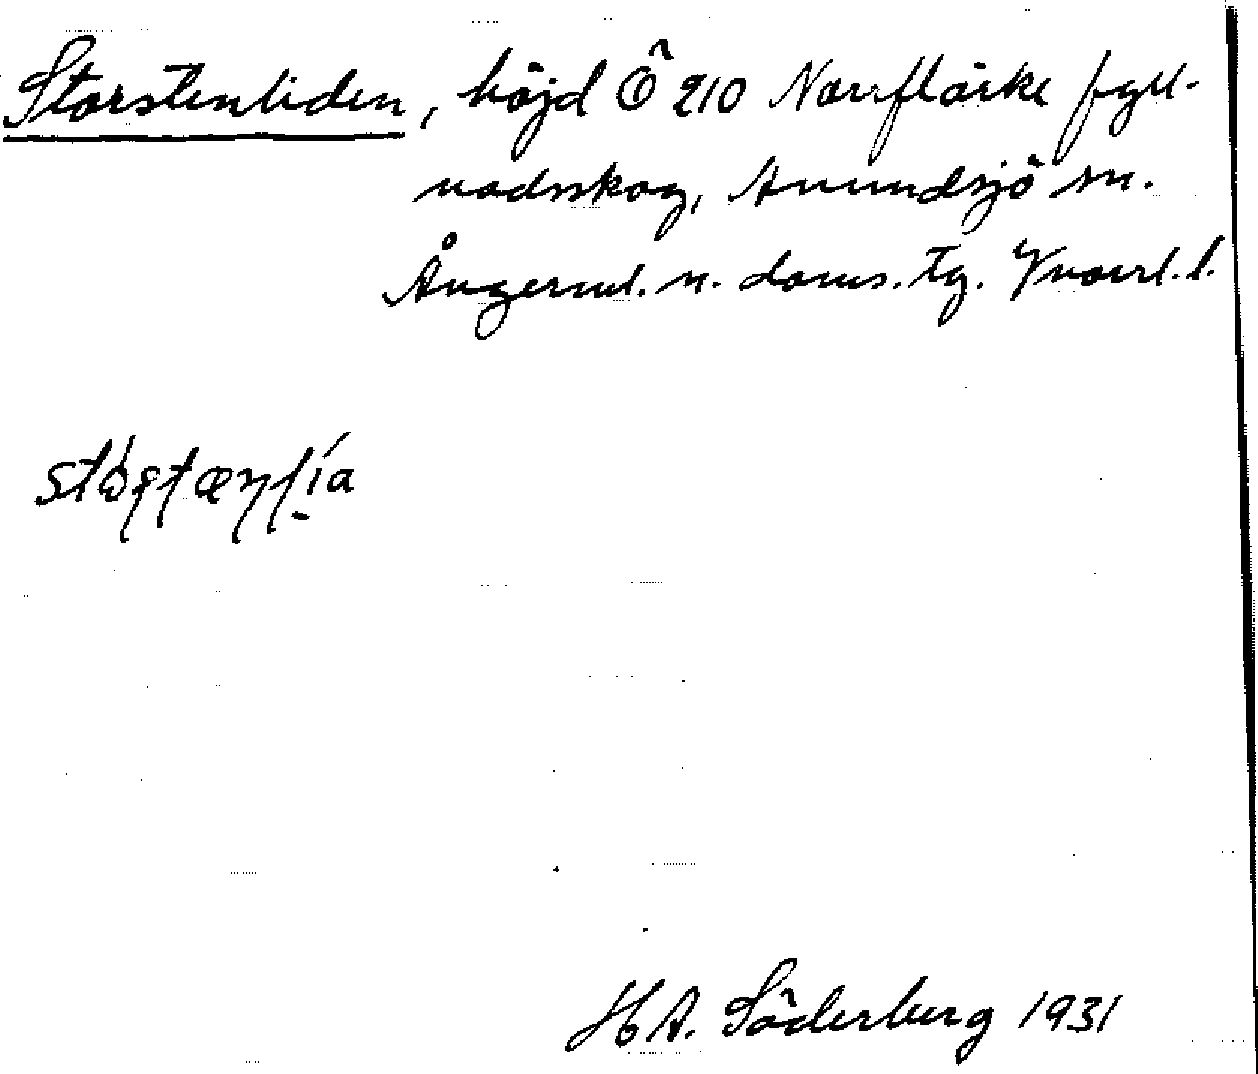 Storstenliden, höjd Ö 210 Norrflärke fyll-
nadsskog, Anundsjö sn.
Ångerml. n. doms. tg. Yvärl. l.
H A. Söderberg 1931